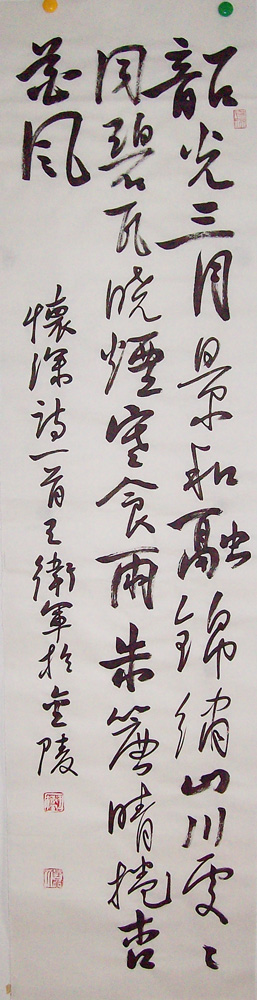 韶光三月景和融錦綉山川处々
同碧瓦晓煙寒食雨朱簾晴捲杏
花风
懷深诗一首王衛軍於金陵